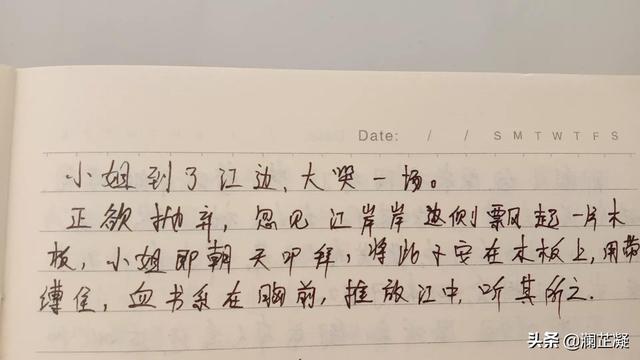 Date: / / S M T W T F S
小姐到了江边,大哭一场。
正欲抛弃,忽见江岸岸边侧飘起一片木
板,小姐即朝天叩拜,将此子安在木板上,用带
缚住,血书系在胸前,推放江中,听其所之.
头条@澜芷凝